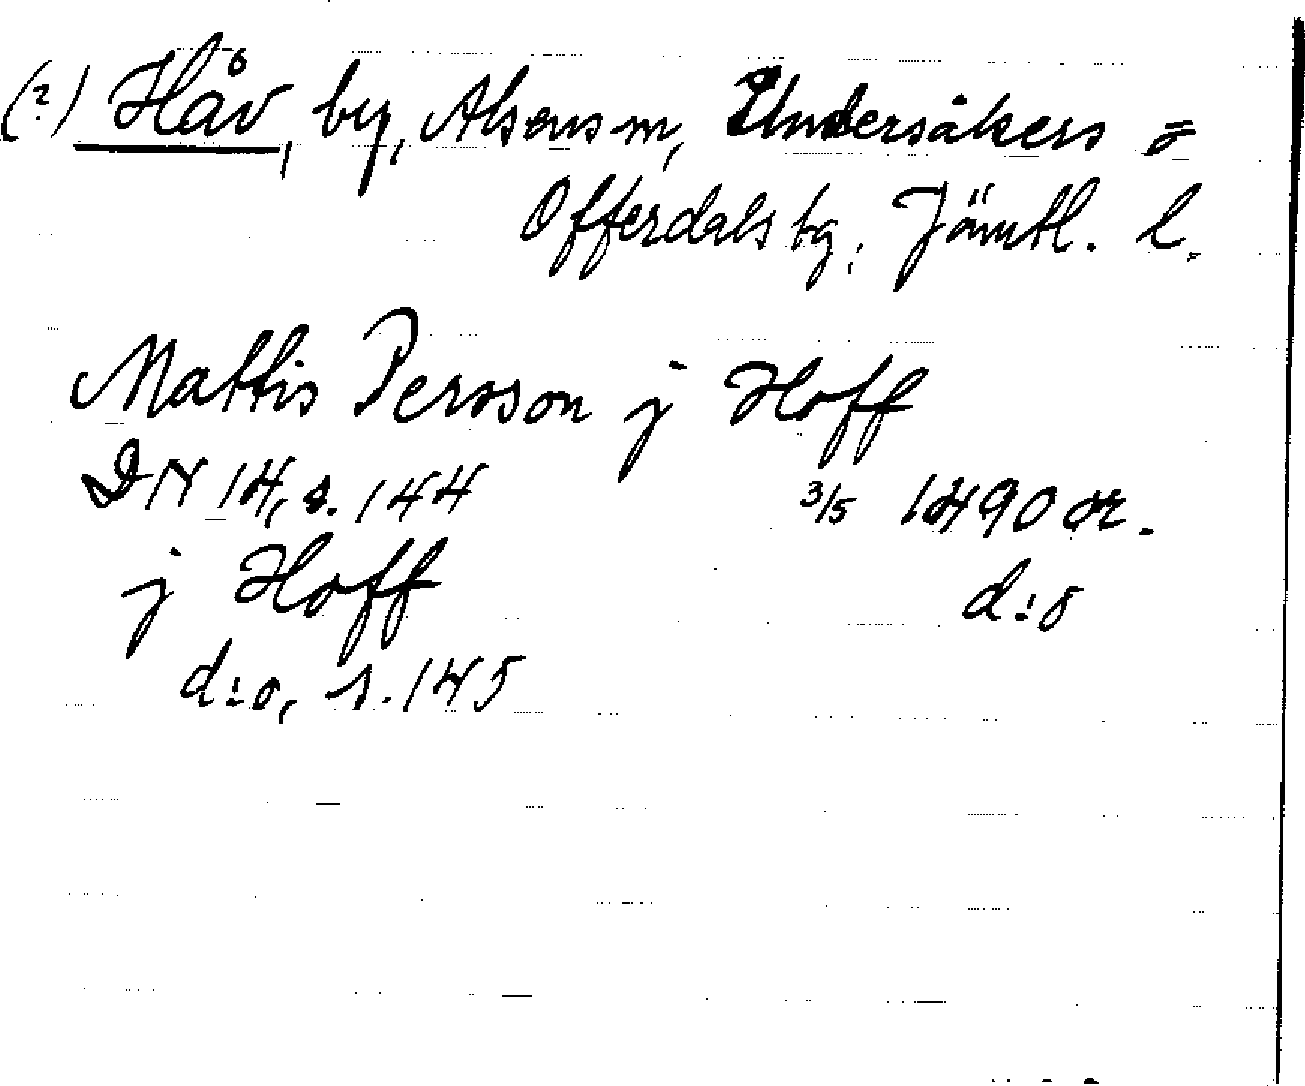 (?) Håv, by, Alsens sn, Undersåkers =
Offerdals tg, Jämtl. l.
Mattis Persson j Hoff
DN 14, s. 144 3/5 1490 or.
j Hoff d:o
d:o, s. 145